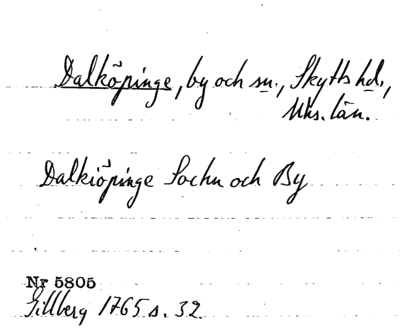 Dalköpinge, by och sn., Skytts hd.,
Mhs. län.
Dalkiöpinge Sochn och By
Nr 5805
Gillberg 1765 s. 32